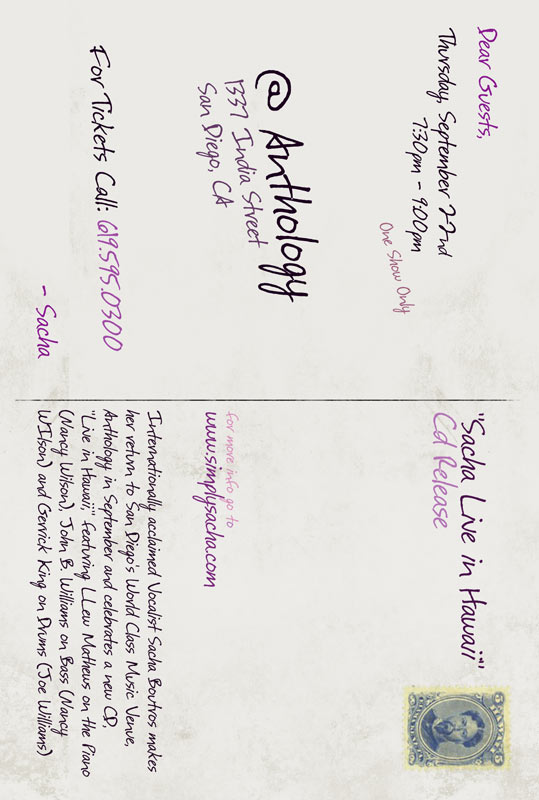 Dear Guests,
Thursday, September 22nd
7:30pm - 9:00pm
One Show Only
@ Anthology
1337 India Street
San Diego, CA
For Tickets Call: 619.595.0300
- Sacha
"Sacha Live in Hawaii"
Cd Release
for more info go to
www.simplysacha.com
Internationally acclaimed Vocalist Sacha Boutros makes
her return to San Diego's World Class Music Venue,
Anthology in September and celebrates a new CD,
"Live in Hawaii," featuring LLew Mathews on the Piano
(Nancy Wilson), John B. Williams on Bass (Nancy
Wilson) and Gerrick King on Drums (Joe Williams)